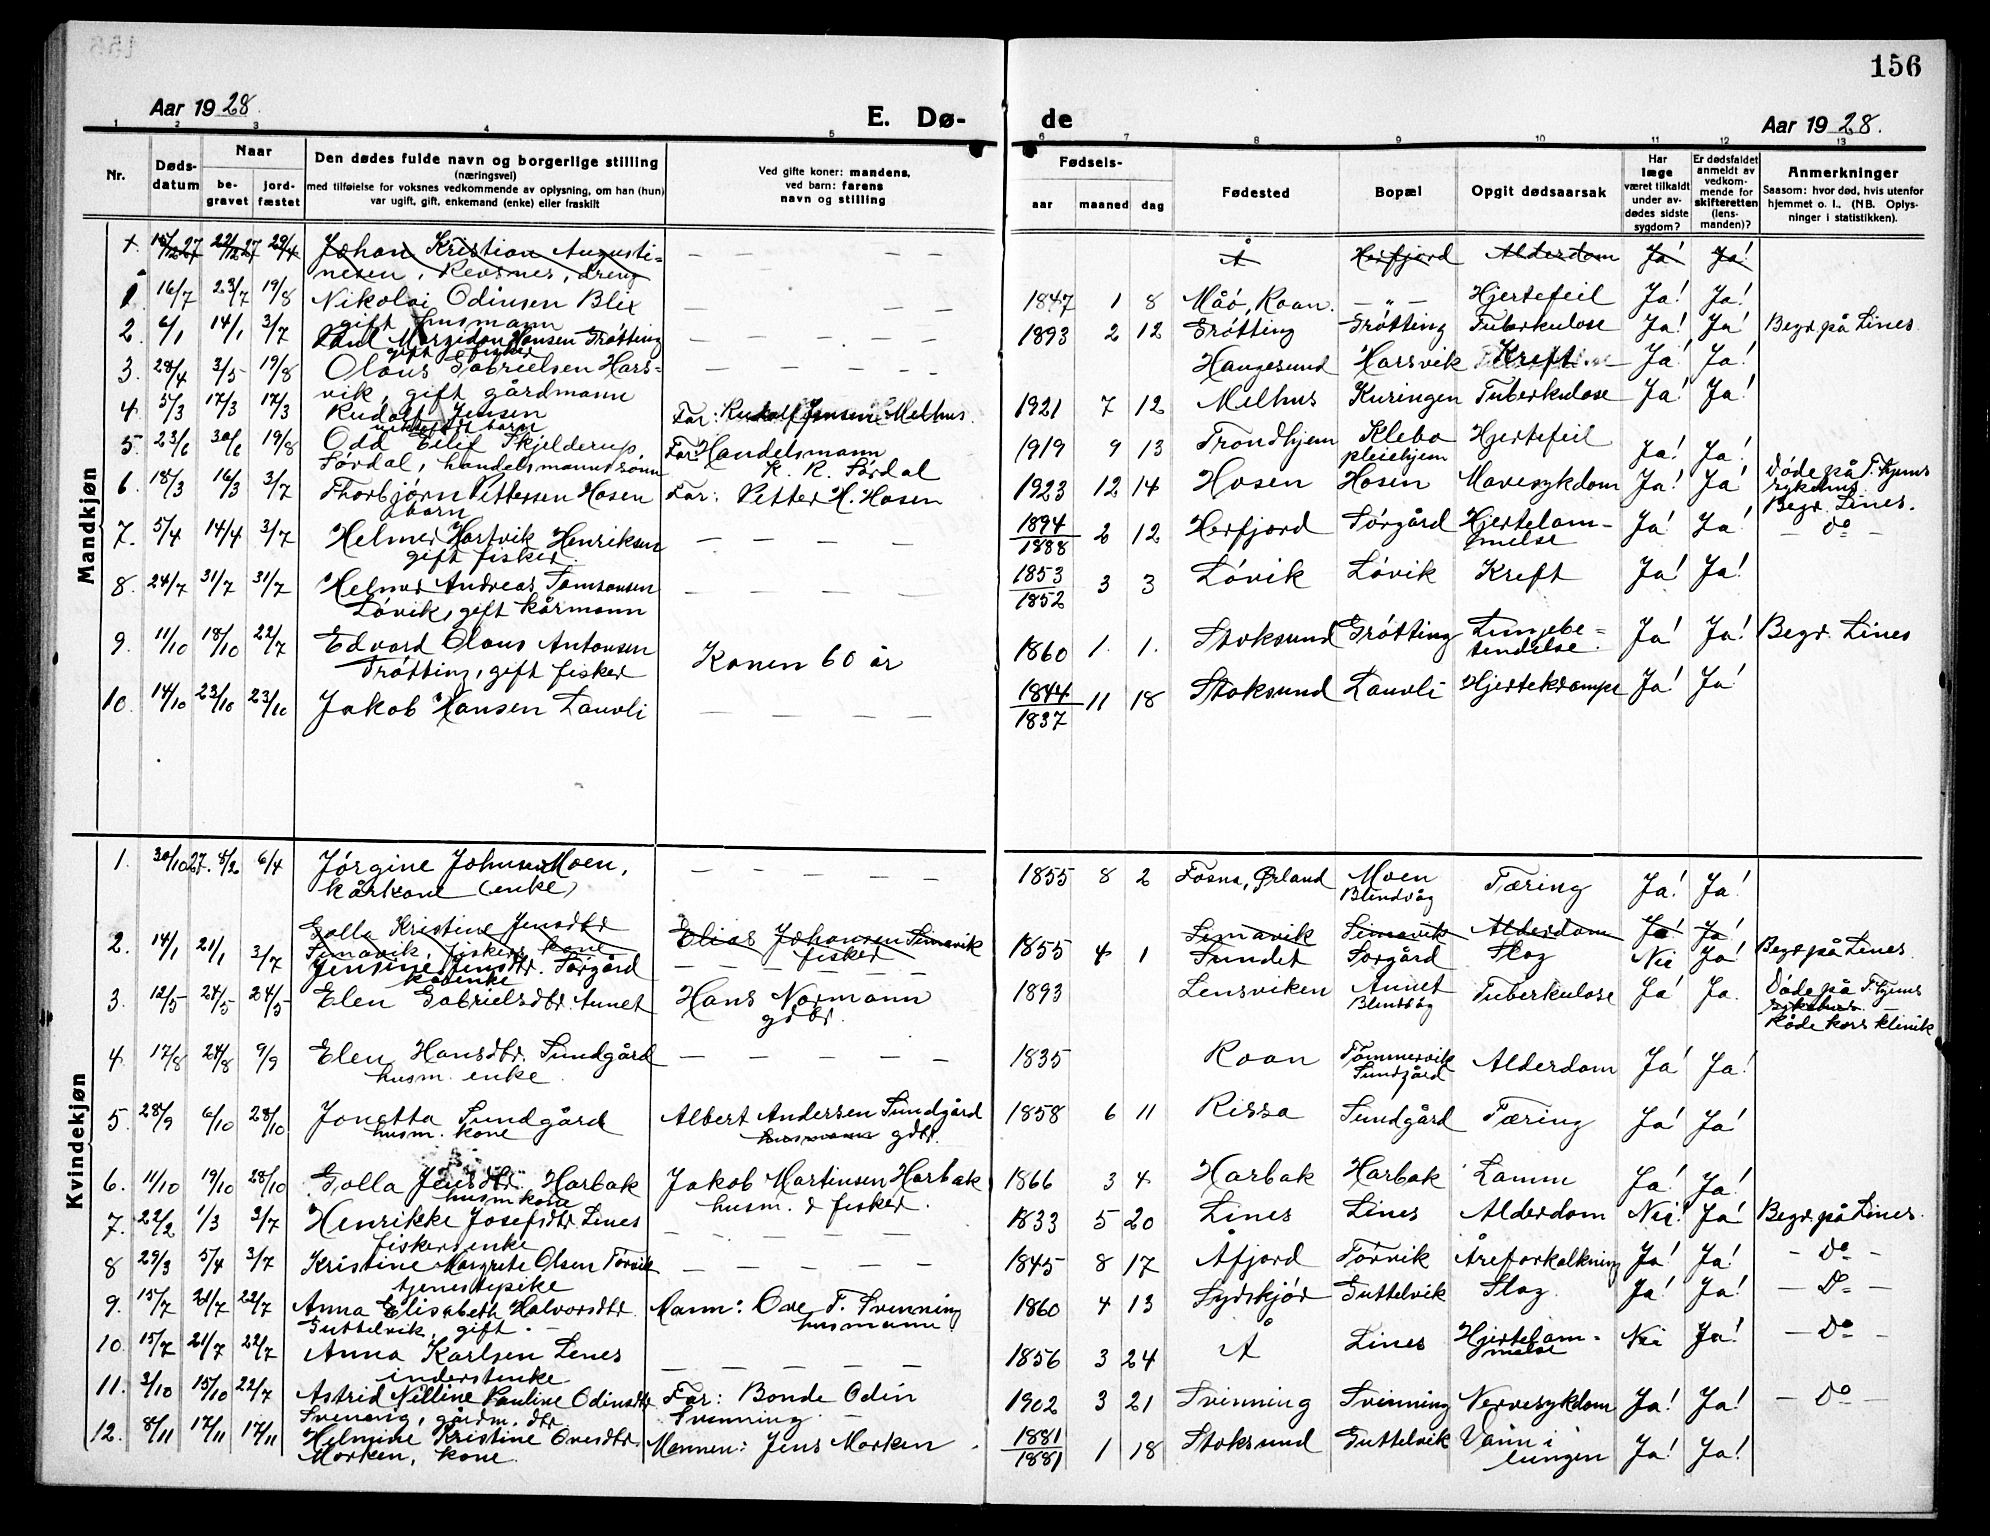 156
Aar 1928.
E. Dø-
de
Aar 1928.
1 2 3 4 5 6 7 8 9 10 11 12 13
Nr.
Døds-
datum
Naar
be-
gravet
jord-
fæstet
Den dødes fulde navn og borgerlige stilling
(næringsvei)
med tilføielse for voksnes vedkommende av oplysning, om han (hun)
var ugift, gift, enkemand (enke) eller fraskilt
Ved gifte koner: mandens,
ved barn: farens
navn og stilling
Fødsels-
aar maaned dag
Fødested
Bopæl
Opgit dødsaarsak
Har
læge
været tilkaldt
under av-
dødes sidste
sygdom?
Er dødsfaldet
anmeldt av
vedkom-
mende for
skifteretten
(lens-
manden)?
Anmerkninger
Saasom: hvor død, hvis utenfor
hjemmet o. l., (NB. Oplys-
ninger i statistikken).
Mandkjøn
Johan Kristian Augusti- — — — — Å Herfjord Alderdom Ja! Ja!
nesen, Revsnes, dreng
1 16/7 23/7 19/8 Nikolai Odinsen Blix — — — — 1847 1 8 Måø, Roan. — „ — Hjertefeil Ja! Ja!
gift husmann
2. 6/1 14/1 3/7 Paul Margidon Hansen Grøtting — — — — 1893 2 12 Grøtting Grøtting Tuberkulose Ja! Ja! Begr. på Lines.
gift fisker
3. 28/4 3/5 19/8 Olaus Gabrielsen Hars- — — — — Hangesund Harsvik Kreft Ja! Ja!
vik, gift gårdmann
4. 5/3 17/3 17/3 Rudolf Jensen Far: Rudolf Jensen Melhus. 1921 7 12 Melhus Kuringen Tuberkulose Ja! Ja!
barn
5. 23/6 30/6 19/8 Odd Eilif Skjelderup Far: Handelsmann 1919 9 13 Trondhjem Klebo Hjertefeil Ja! Ja!
Sørdal, handelsmannssønn K. R. Sørdal pleiehjem
6. 18/3 16/3 3/7 Thorbjørn Pettersen Hosen Far: Petter H. Hosen 1923 12 14 Hosen Hosen Mavesykdom Ja! Ja! Døde på T.hjems
barn sykehus
Begr. Lines.
7. 5/4 14/4 3/7 Helmer Hartvik Henriksen — — — — 1894/1888 2 12 Herfjord Sørgård Hjertelam- Ja! Ja! — do —
gift fisker. melse
8. 24/7 31/7 31/7 Helmer Andreas Tomsonsen — — — — 1853/1852 3 3 Løvik Løvik Kreft Ja! Ja!
Løvik, gift kårmann
9. 11/10 18/10 22/7 Edvard Olaus Antonsen Konen 60 år 1860 1. 1. Stoksund Grøtting Lungebe- Ja! Ja! Begr. Lines
Grøtting, gift fisker tendelse.
10. 14/10 23/10 23/10 Jakob Hansen Lauvli — — — — 1844/1837 11 18 Stoksund Lauvli Hjertekrampe Ja! Ja!
Kvindekjøn
1. 30/10 27. 8/2 6/4 Jørgine Johnsen Moen, — — — — 1855 8 2 Fosna, Ørland Moen Tæring Ja! Ja!
kårkone (enke) Blindvåg
Golla Kristine Jensdtr Elias Johansen Simavik Simavik Simavik Alderdom Ja! Ja!
Simavik, fiskers kone fisker
2. 14/1 21/1 3/7 Jensine Jensdtr. Sørgård — — — — 1855 4 1 Sundet Sørgård Slag Nei Ja! Begr. på Lines.
kårenke
3. 12/5 24/5 24/5 Elen Gabrielsdtr. Aunet Hans Normann 1893 Lensviken Aunet Tuberkulose Ja! Ja. Døde på T.hjems
gdbr. Blindvåg sykehus —
Røde kors klinik
4. 17/8 24/8 9/9 Elen Hansdtr. Sundgård — — — — 1835 Roan Tømmervik Alderdom Ja! Ja!
husm. enke. Sundgård
5. 28/9 6/10 28/10 Jonetta Sundgård Albert Andersen Sundgård 1858 6 11 Rissa Sundgård Tæring Ja! Ja!
husm. kone husmann gdbr.
6. 11/10 19/10 28/10 Golla Jensdtr. Harbak Jakob Martinsen Harbak 1866 3 4 Harbak Harbak Lamm Ja! Ja!
husm kone husm. & fisker.
7. 22/2 1/3 3/7 Henrikke Josefsdtr Lines — — — — 1833 5 20 Lines Lines Alderdom Nei! Ja! Begr. på Lines.
fiskersenke
8 29/3 5/4 3/7 Kristine Margrete Olsen Tørvik — — — — 1845 8 17 Åfjord Tørvik Åreforkalkning Ja! Ja! — Do —
tjenestepike
9. 15/7 21/7 22/7 Anna Elisabeth Halvorsdtr. Mann: Ove T. Svenning 1860 4 13 Sydskjør Guttelvik Slag. Ja! Ja! — Do —
Guttelvik, gift. — husmann.
10. 15/7 21/7 22/7 Anna Karlsen Lenes — — — — 1856 3 24 Å Lines Hjertelam- Nei Ja! — Do —
inderstenke melse
11. 3/10 15/10 22/7 Astrid Nilline Pauline Odinsdtr Far: Bonde Odin 1902 3 21 Svinning Svinning Nervesykdom Ja! Ja! — Do —
gårdm. dtr. Svinning —
12. 8/11 17/11 17/11 Helmine Kristine Ovesdtr. Mannen: Jens Morken. 1881/1881 1 18 Stoksund Guttelvik Vann i Ja! Ja!
Morken, kone. lungen